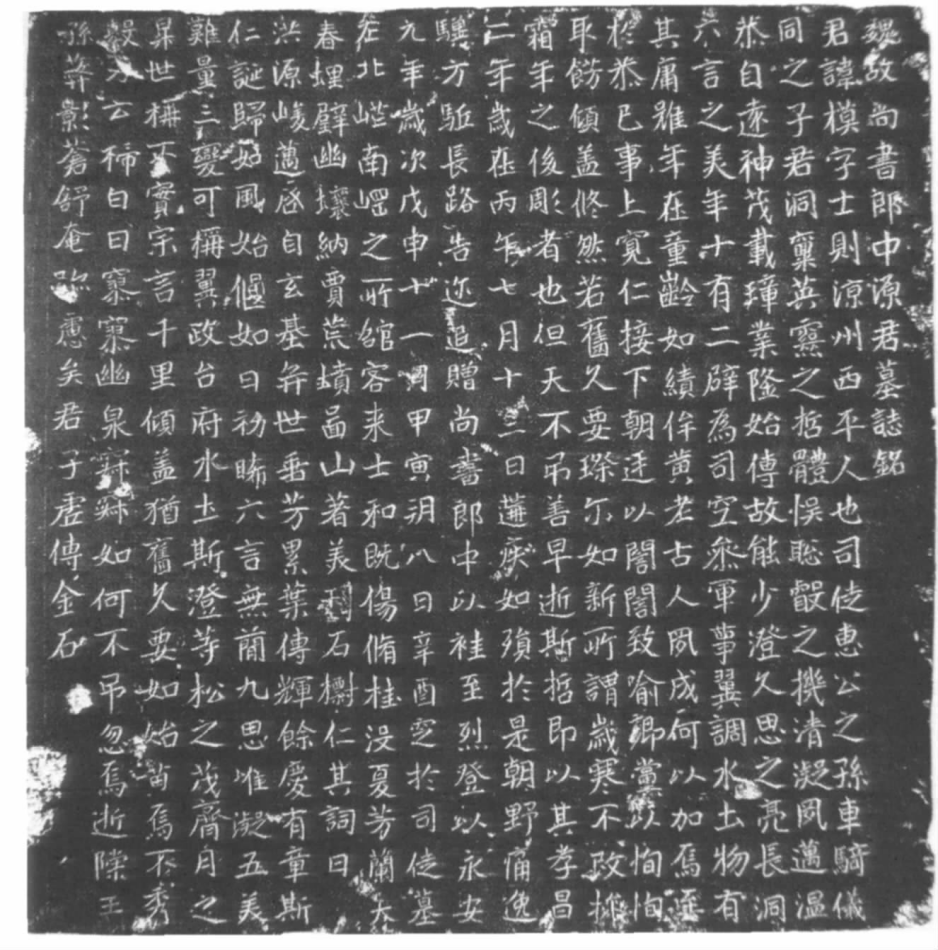 魏故尚書郎中源君墓誌銘
君諱模字士則涼州西平人也司徒惠公之孫車騎儀
同之子君洞稟英靈之哲體悞聡叡之機清凝夙邁溫
恭自遠神茂載瑋業隆始傳故能少澄久思之亮長洞
六言之美年十有二辟為司空叅軍事翼調水土物有
其庸雖年在童齡如績侔黄老古人夙成何以加焉
恭已事上寛仁接下朝廷以誾誾致喻鄉黨以恂恂
取餝傾盖修然若舊久要琛尓如新所謂歲寒不改
霜年之後彫者也但天不吊善早逝斯哲即以其孝昌
二年歲在丙午七月十三日遘疾如殞於是朝野痛逸
驥方駈長路告迩追贈尚書郎中以袿至烈登以永安
元年歲次戊申十一月甲寅朔八日辛酉窆於司徒墓
左北嵫南㟴之所舘客来士和既傷脩桂没夏芳蘭夭
春埋璧幽壤納賈荒墳啚山著美刊石樹仁其詞曰
洪源峻邁啓自玄基弈世垂芳累葉傳輝餘慶有章斯
仁誕歸如風始偃如日初晞六言無蔄九思唯凝五美
難量三變可稱翼政台府水土斯澄等松之茂齊月之
昇世稱不實宗言千里傾盖猶舊久要如始苗焉不秀
穀云稀白日㬥㬥幽泉寐寐如何不吊忽焉逝
孫弈彰蒼舒奄慝矣君子虚傳金石